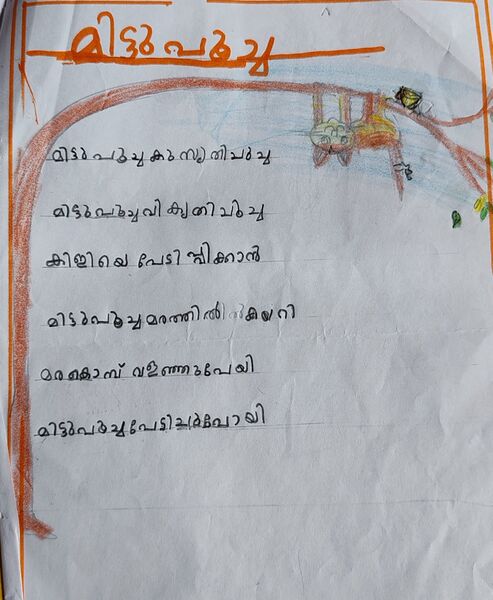 മിട്ടുപൂച്ച
മിട്ടുപൂച്ച കുസൃതിപൂച്ച
മിട്ടുപൂച്ച വികൃതിപൂച്ച
കിളിയെ പേടിപ്പിക്കാൻ
മിട്ടുപൂച്ച മരത്തിൽ കയറി
മരകൊമ്പ് വളഞ്ഞുപേയി
മിട്ടുപൂച്ച പേടിച്ചുപോയി